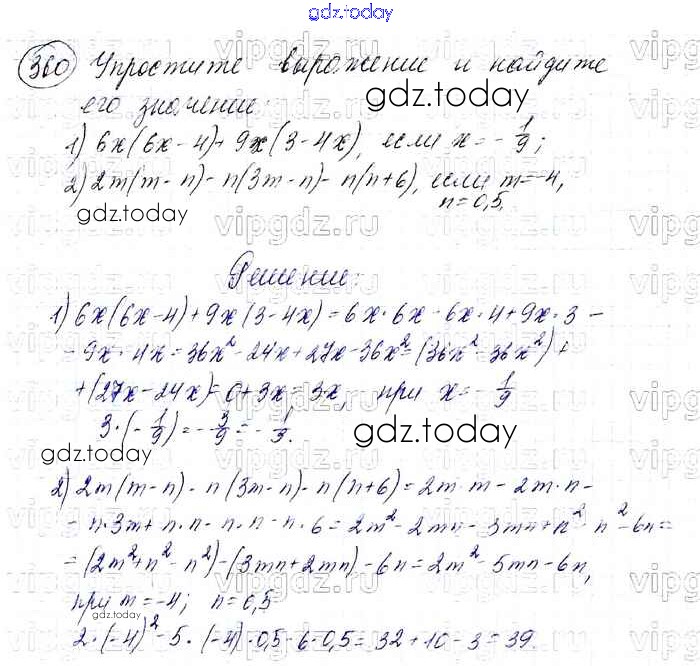 gdz.today
360 Упростите выражение и найдите
его значение:
gdz.today
1) 6x(6x-4)+9x(3-4x), если x=-1/9;
2) 2m(m-n)-n(3m-n)-n(n+6), если m=-4,
n=0,5.
gdz.today
Решение:
1) 6x(6x-4)+9x(3-4x)=6x·6x-6x·4+9x·3-
-9x·4x=36x²-24x+27x-36x²=(36x²-36x²)+
+(27x-24x)=0+3x=3x, при x=-1/9
3·(-1/9)=-3/9=-1/3.
gdz.today
gdz.today
2) 2m(m-n)-n(3m-n)-n(n+6)=2m·m-2m·n-
-n·3m+n·n-n·n-n·6=2m²-2mn-3mn+n²-n²-6n=
=(2m²+n²-n²)-(3mn+2mn)-6n=2m²-5mn-6n,
при m=-4; n=0,5
gdz.today
2·(-4)²-5·(-4)·0,5-6·0,5=32+10-3=39.
vipgdz.ru